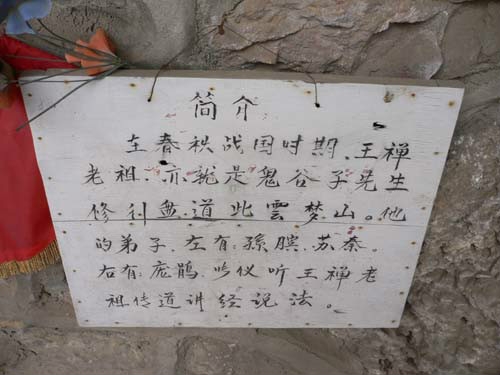 简介
在春秋战国时期、王禅
老祖、亦就是鬼谷子先生
修 道此雲梦山。他
的弟子、左有孫膑、苏秦。
右有庞鹃、 仪听王禅老
祖传道讲经说法。